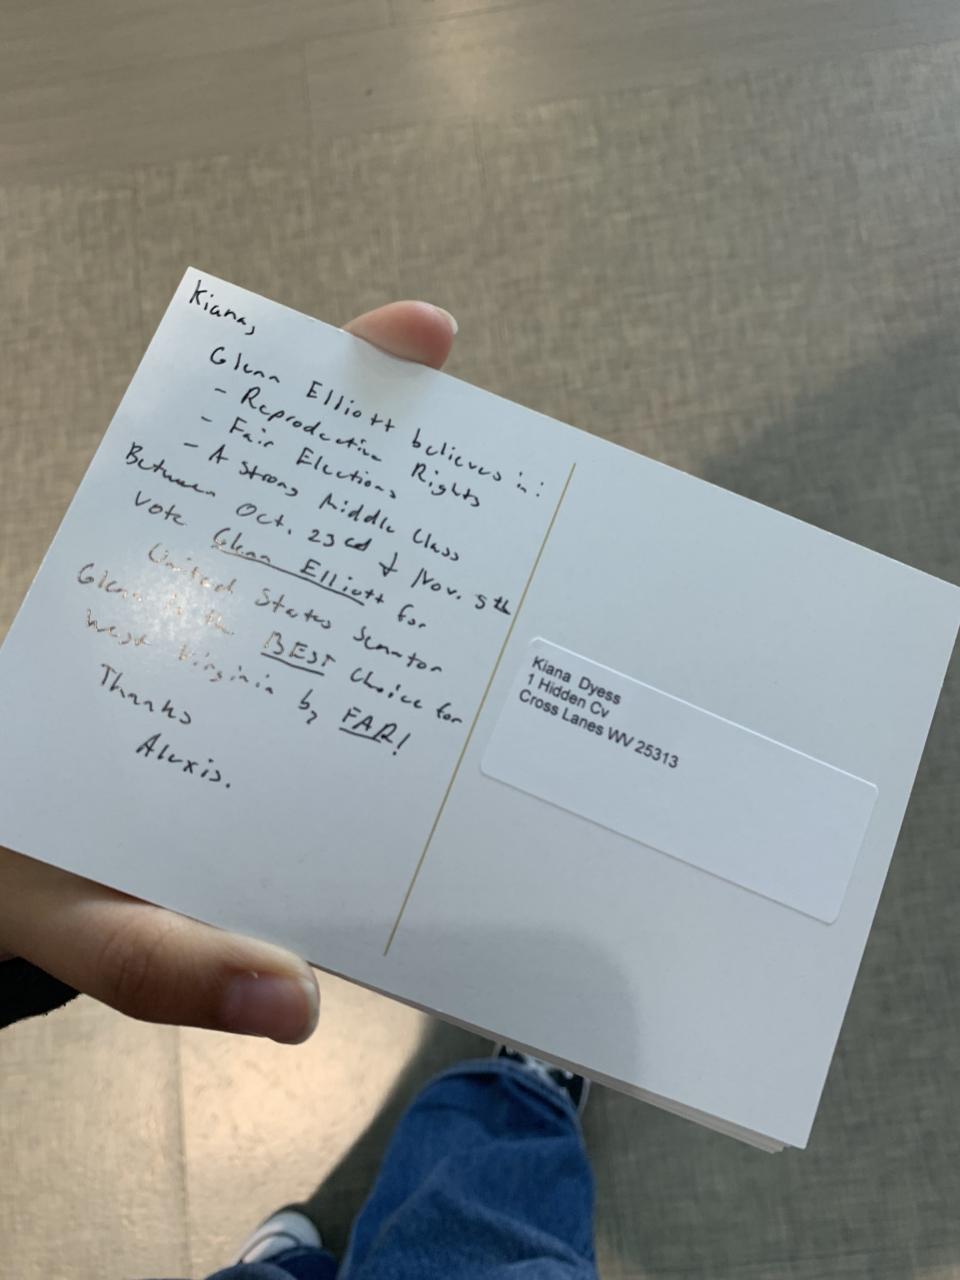 Kiana,
Glenn Elliott believes in:
- Reproductive Rights
- Fair Elections
- A strong Middle Class
Between Oct. 23rd & Nov. 5th
Vote Glenn Elliott for
United States Senator
Glenn is the BEST choice for
West Virginia by FAR!
Thanks
Alexis.
Kiana Dyess
1 Hidden Cv
Cross Lanes WV 25313